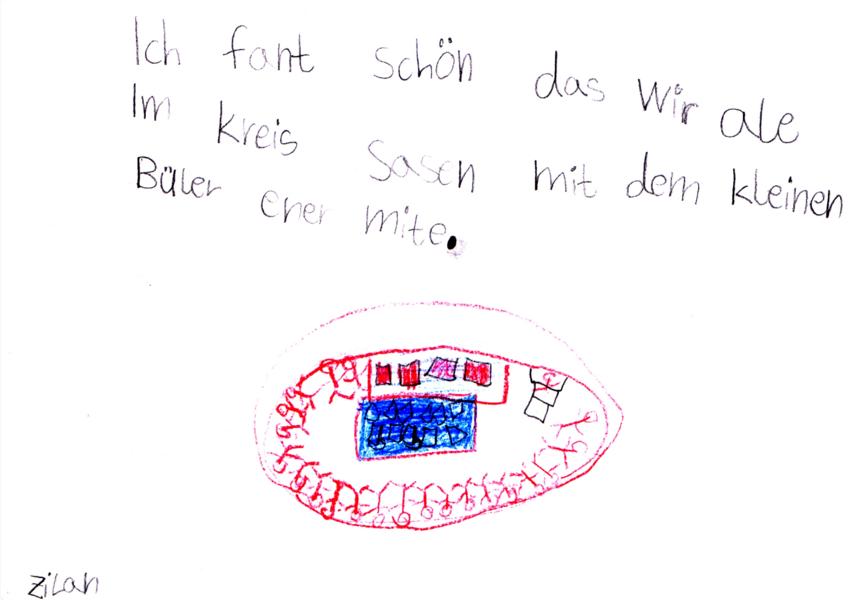 Ich fant schön das wir ale
Im kreis Sasen mit dem kleinen
Büler ener mite.
Zilan